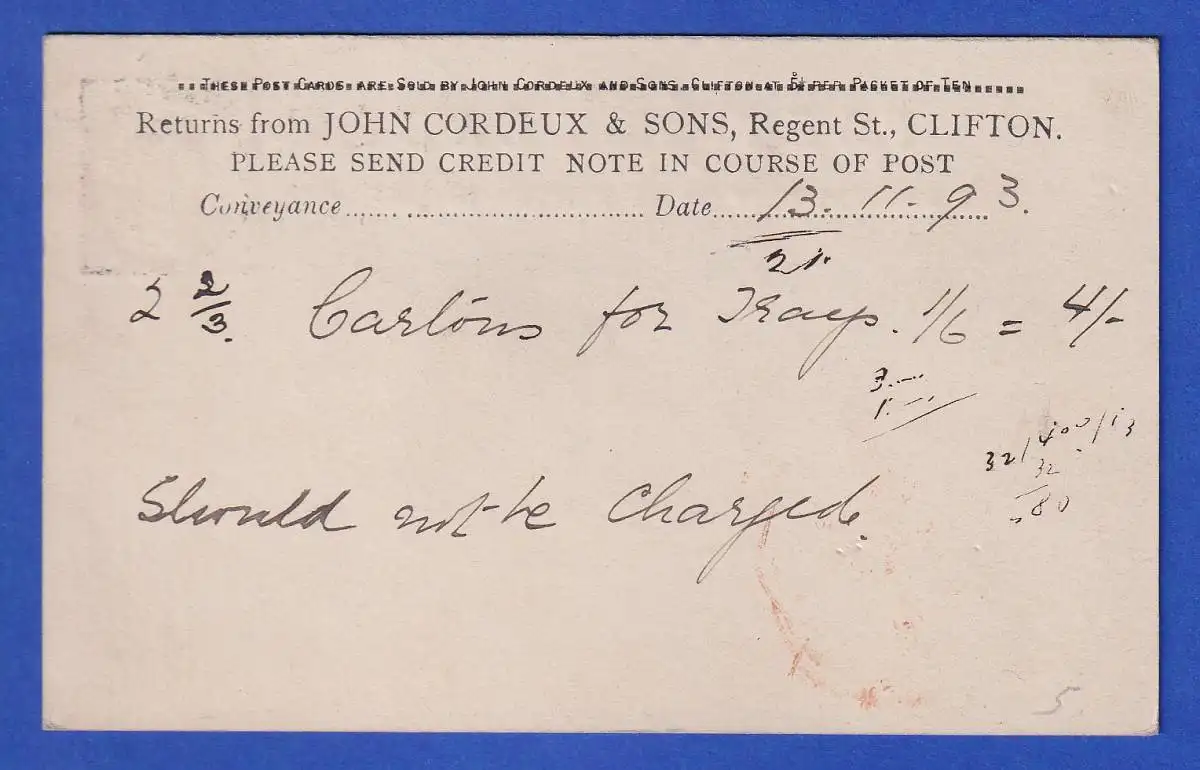 THESE POST CARDS ARE SOLD BY JOHN CORDEUX AND SONS, CLIFTON AT PER PACKET OF TEN
Returns from JOHN CORDEUX & SONS, Regent St., CLIFTON.
PLEASE SEND CREDIT NOTE IN COURSE OF POST
Conveyance Date 13.11.93.
21.
2 2/3. Cartons for Trays. 1/6 = 4/-
3
1
32/400/13
32
80
Should not be charged.
5